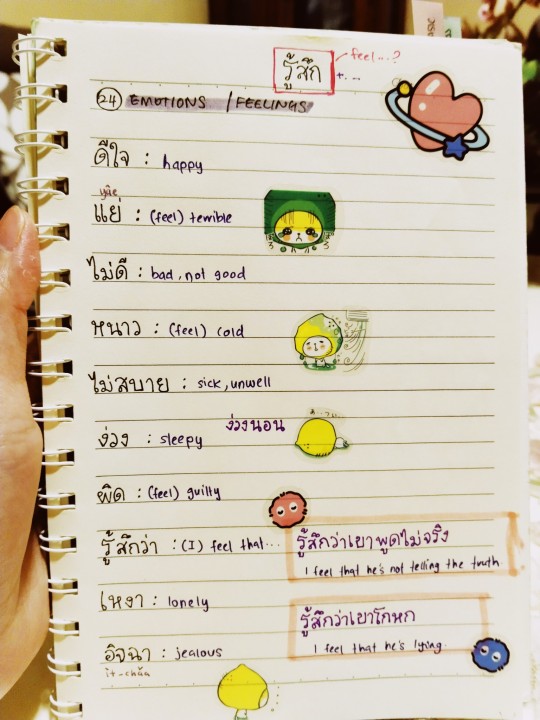 รู้สึก +... feel...?
24 EMOTIONS / FEELINGS
ดีใจ : happy
yâe
แย่ : (feel) terrible
ไม่ดี : bad, not good
หนาว : (feel) cold
ไม่สบาย : sick, unwell
ง่วง : sleepy ง่วงนอน
ผิด : (feel) guilty
รู้สึกว่า : (I) feel that...
รู้สึกว่าเขาพูดไม่จริง
I feel that he's not telling the truth.
เหงา : lonely
รู้สึกว่าเขาโกหก
I feel that he's lying.
อิจฉา : jealous
it-chǎa